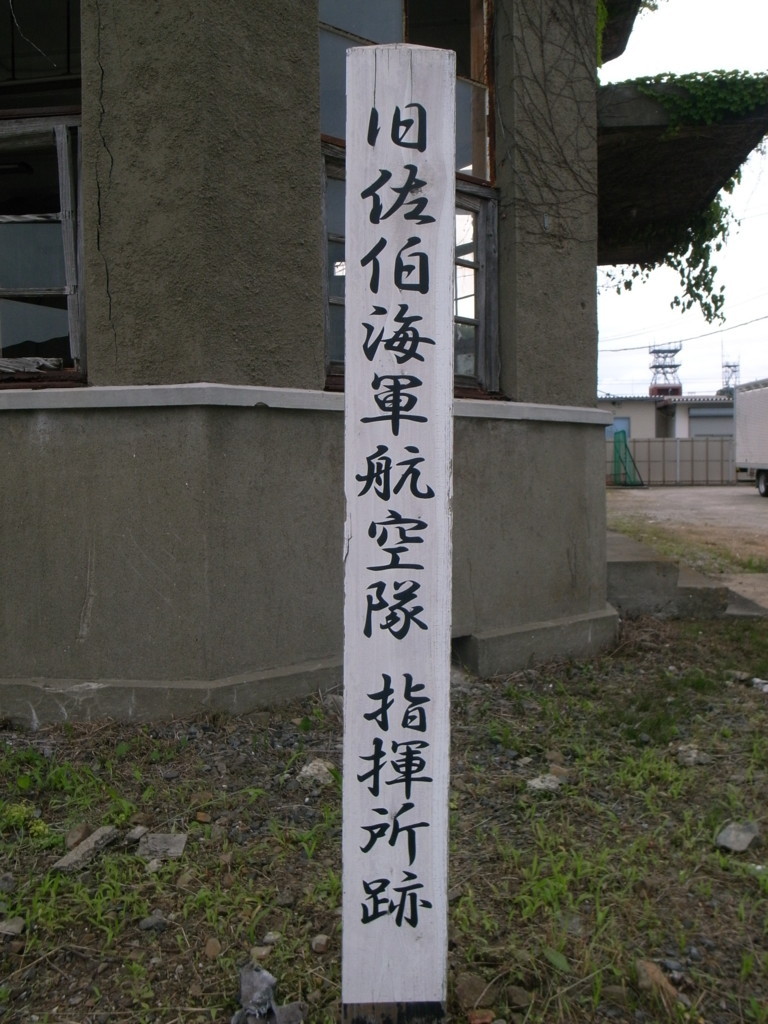 旧佐伯海軍航空隊 指揮所跡